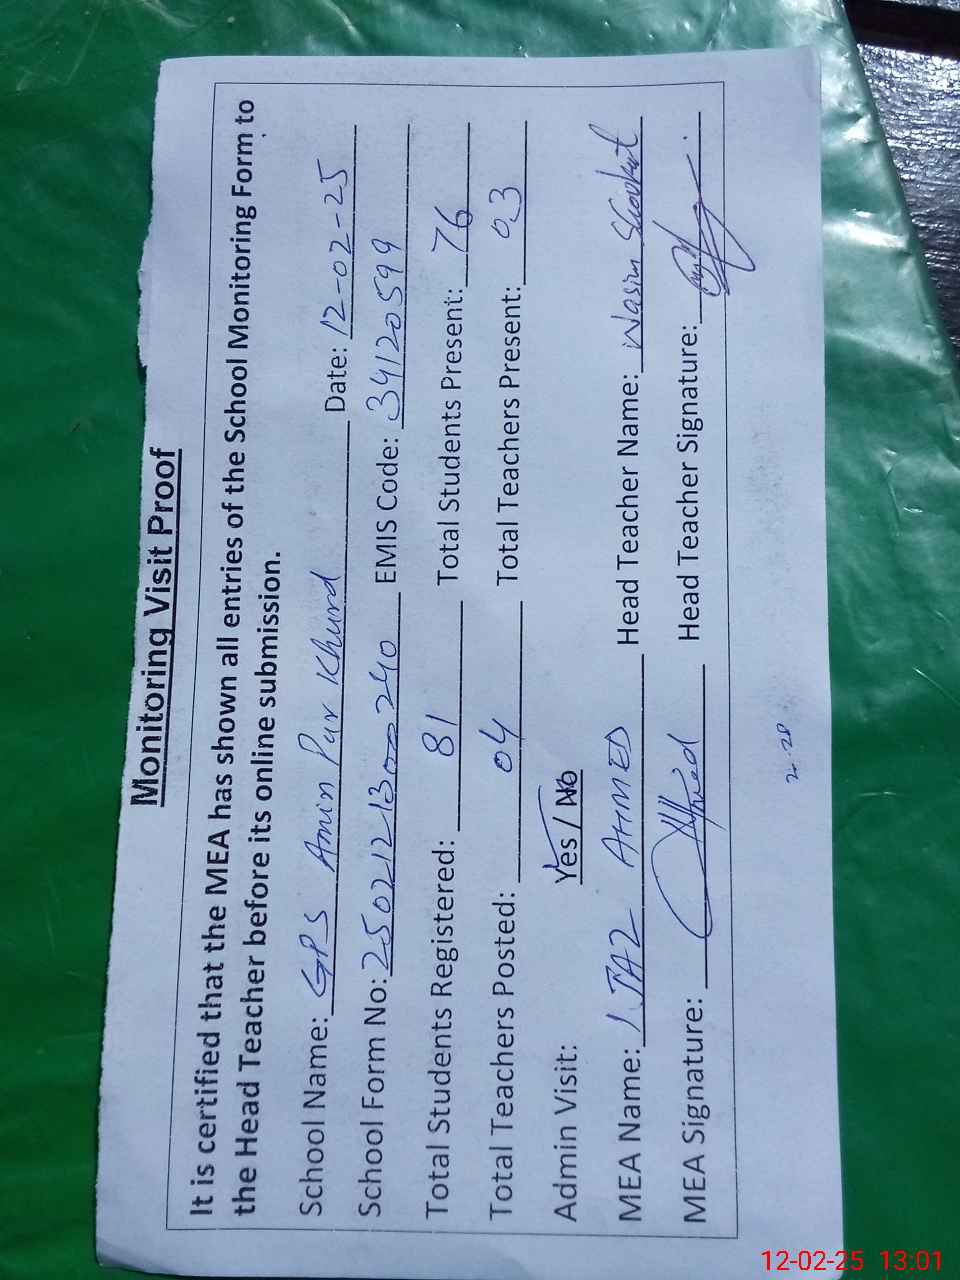 Monitoring Visit Proof
It is certified that the MEA has shown all entries of the School Monitoring Form to
the Head Teacher before its online submission.
School Name: GPS Amin Pur Khurd Date: 12-02-25
School Form No: 2502121300240 EMIS Code: 34120599
Total Students Registered: 81 Total Students Present: 76
Total Teachers Posted: 04 Total Teachers Present: 03
Admin Visit: Yes / No
MEA Name: IJAZ AHMED Head Teacher Name: Wasim Shoukat
MEA Signature: Head Teacher Signature:
12-02-25 13:01